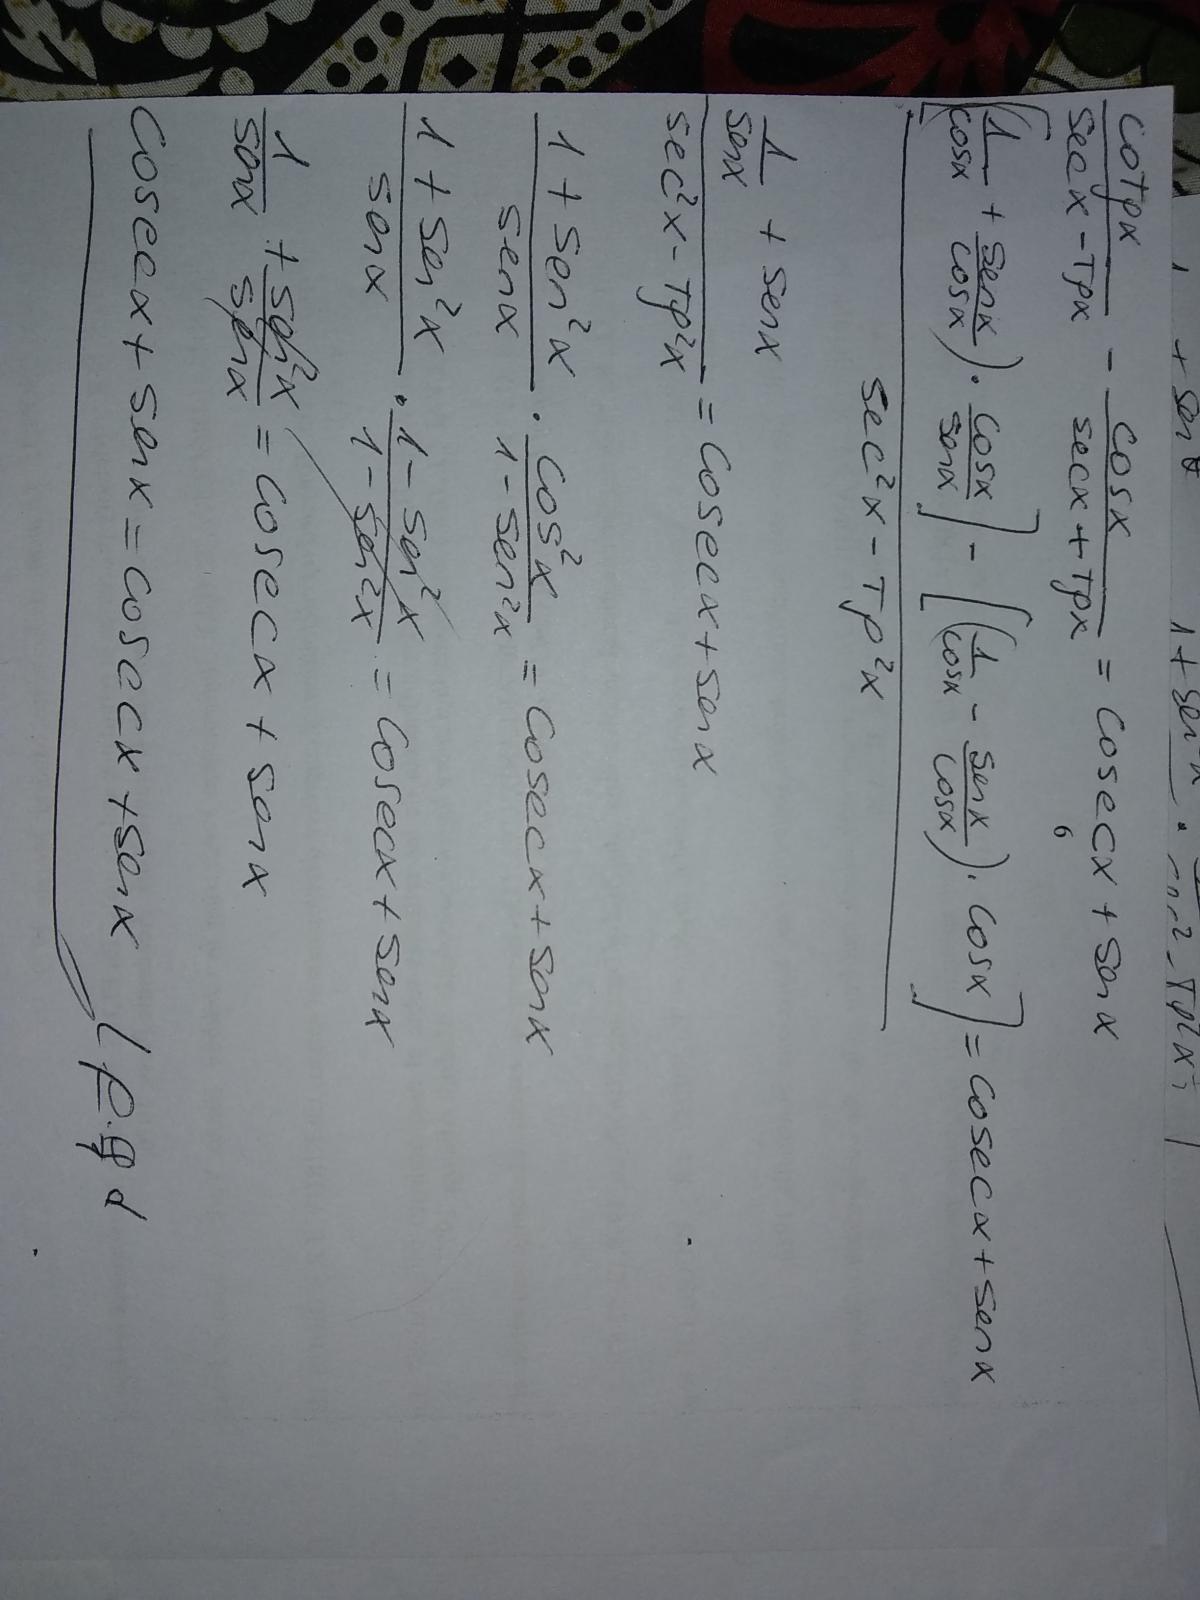 1 + senx 1 + sen²x · Tp²x =
cotpx/(secx - Tpx) - cosx/(secx + Tpx) = cosecx + senx
6
[(1/cosx + senx/cosx) · cosx/senx] - [(1/cosx - senx/cosx) · cosx] = cosecx + senx
sec²x - Tp²x
1/senx + senx
sec²x - Tp²x = cosecx + senx
(1 + sen²x)/senx · cos²x/(1 - sen²x) = cosecx + senx
(1 + sen²x)/senx · (1 - sen²x)/(1 - sen²x) = cosecx + senx
1/senx + sen²x/senx = cosecx + senx
cosecx + senx = cosecx + senx L p.q d